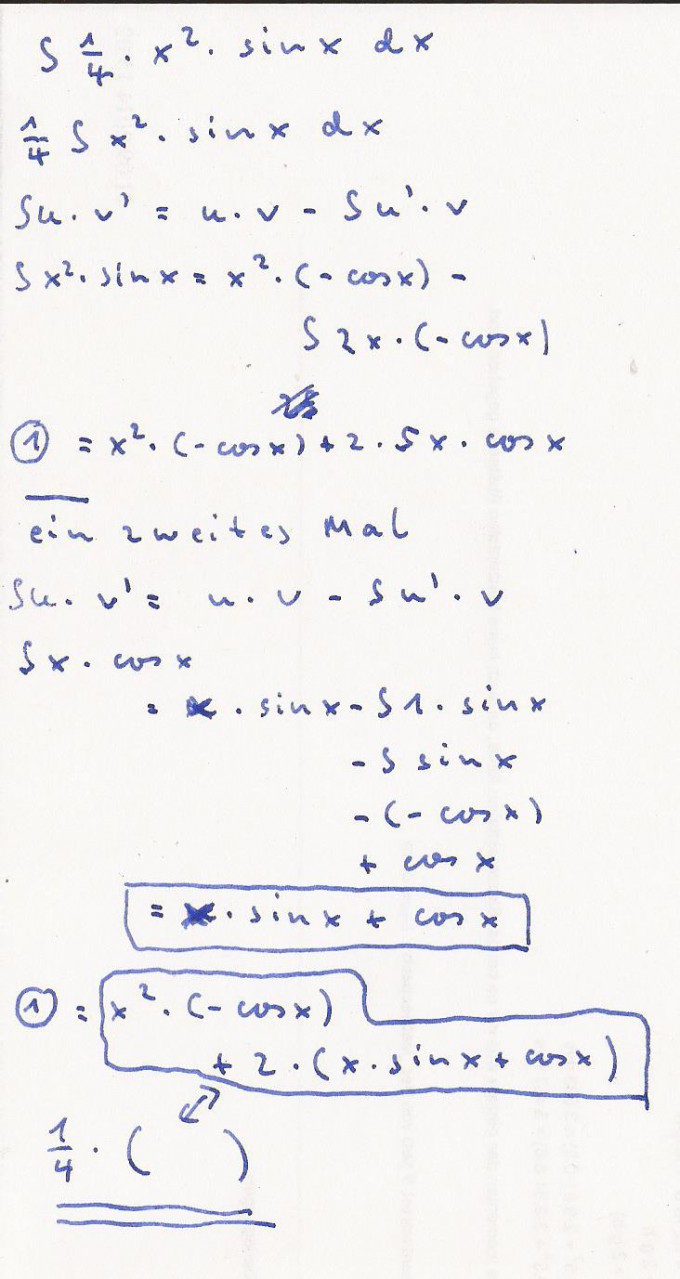 ∫ 1/4 · x² · sin x dx
1/4 ∫ x² · sin x dx
∫u · v' = u · v - ∫u' · v
∫x² · sin x = x² · (- cos x) -
∫ 2x · (- cos x)
① = x² · (- cos x) + 2 · ∫x · cos x
ein zweites Mal
∫u · v' = u · v - ∫u' · v
∫x · cos x
= x · sin x - ∫1 · sin x
- ∫ sin x
- (- cos x)
+ cos x
= x · sin x + cos x
① = x² · (- cos x)
+ 2 · (x · sin x + cos x)
1/4 · (     )